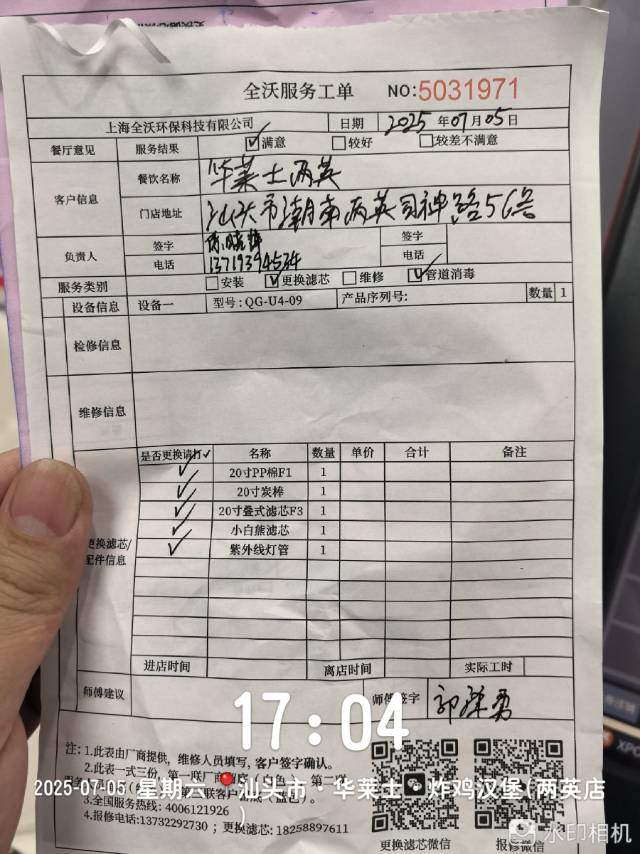 全沃服务工单 NO:5031971
上海全沃环保科技有限公司 日期 2025 年 07 月 05 日
餐厅意见 服务结果 ☑满意 □较好 □较差不满意
客户信息 餐饮名称 华莱士两英
门店地址 汕头市潮南两英司神路56号
负责人 签字 签字
电话 13719394534 电话
服务类别 □安装 ☑更换滤芯 □维修 ☑管道消毒
设备信息 设备一 型号:QG-U4-09 产品序列号: 数量 1
检修信息
维修信息
更换滤芯/配件信息 是否更换请打✓ 名称 数量 单价 合计 备注
✓ 20寸PP棉F1 1
✓ 20寸炭棒 1
✓ 20寸叠式滤芯F3 1
✓ 小白熊滤芯 1
✓ 紫外线灯管 1
进店时间 离店时间 实际工时
师傅建议 师傅签字
17:04
注: 1.此表由厂商提供，维修人员填写，客户签字确认。
2.此表一式三份，第一联厂商
2025-07-05 星期六 汕头市·华莱士 炸鸡汉堡(两英店)
3.全国服务热线: 4006121926
4.报修电话:13732292730 ; 更换滤芯: 18258897611
更换滤芯微信 报修微信
水印相机
XPC